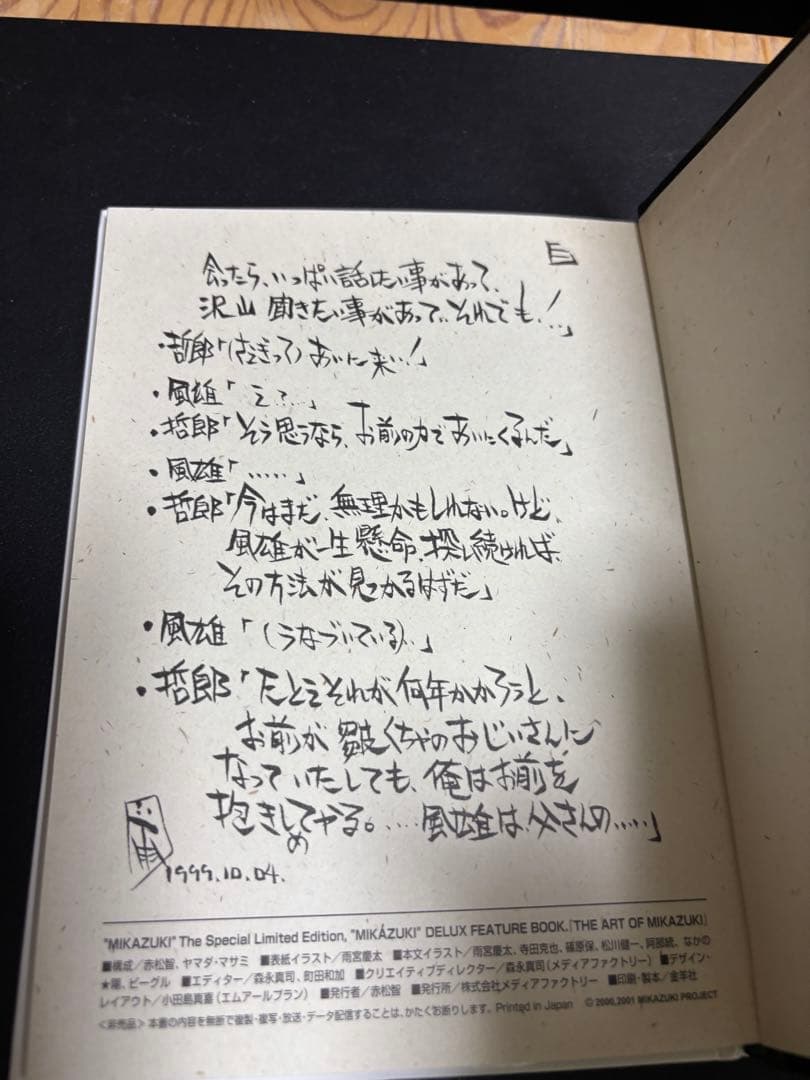 会ったら、いっぱい話したい事があって、
沢山 聞きたい事があって、それでも、!」
・哲郎「(さえぎって)あいに来い!」
・風雄「え?…」
・哲郎「そう思うなら、お前の力であいにくるんだ」
・風雄「……」
・哲郎「今はまだ、無理かもしれない。けど、
風雄が一生懸命、探し続ければ、
その方法が見つかるはずだ」
・風雄「(うなづいている)…」
・哲郎「たとえそれが何年かかろうと、
お前が皺くちゃのおじいさんに
なっていたしても、俺はお前を
抱きしめてやる。…風雄は、父さんの……」
1999.10.04.
"MIKAZUKI" The Special Limited Edition, "MIKAZUKI" DELUX FEATURE BOOK.『THE ART OF MIKAZUKI』
■構成/赤松智、ヤマダ・マサミ ■表紙イラスト/雨宮慶太 ■本文イラスト/雨宮慶太、寺田克也、篠原保、松川健一、阿部統、なかの
★陽、ビーグル ■エディター/森永真司、町田和加 ■クリエイティブディレクター/森永真司(メディアファクトリー) ■デザイン・
レイアウト/小田島真喜(エムアールプラン) ■発行者/赤松智 ■発行所/株式会社メディアファクトリー ■印刷・製本/金羊社
<非売品> 本書の内容を無断で複製・複写・放送・データ配信することは、かたくお断りします。 Printed in Japan © 2000,2001 MIKAZUKI PROJECT